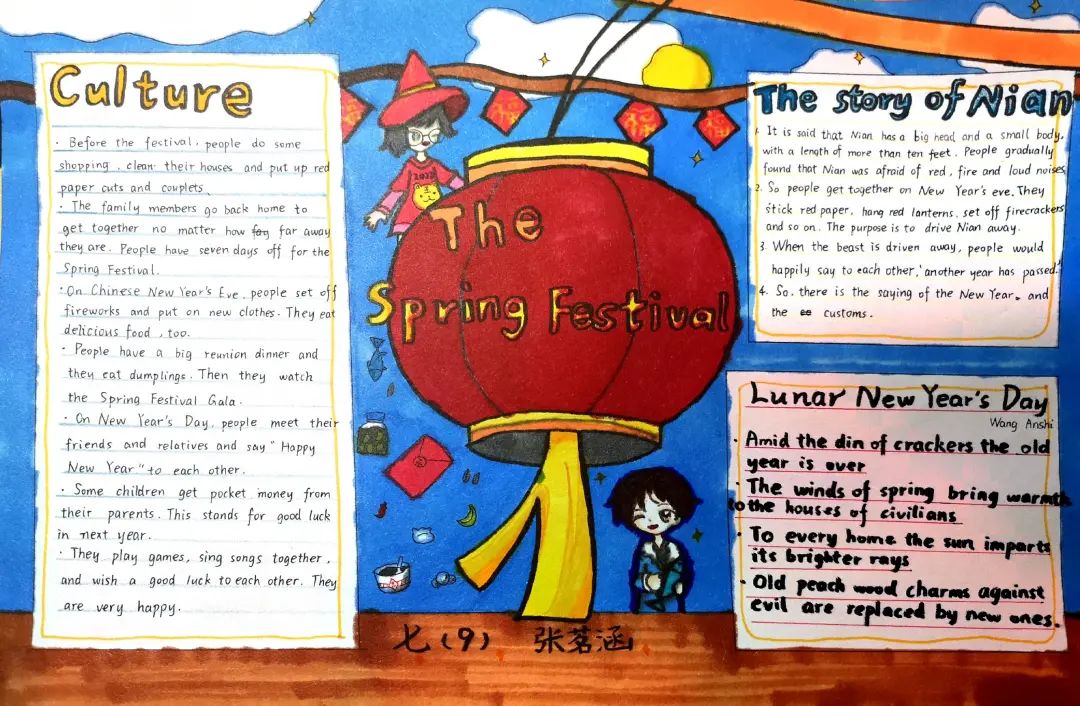 Culture
· Before the festival, people do some
shopping, clean their houses and put up red
paper cuts and couplets.
· The family members go back home to
get together no matter how far away
they are. People have seven days off for the
Spring Festival.
· On Chinese New Year's Eve, people set off
fireworks and put on new clothes. They eat
delicious food, too.
· People have a big reunion dinner and
they eat dumplings. Then they watch
the Spring Festival Gala.
· On New Year's Day, people meet their
friends and relatives and say "Happy
New Year" to each other.
· Some children get pocket money from
their parents. This stands for good luck
in next year.
· They play games, sing songs together,
and wish a good luck to each other. They
are very happy.
2022
The
Spring Festival
七(9) 张茗涵
The story of Nian
1. It is said that Nian has a big head and a small body,
with a length of more than ten feet. People gradually
found that Nian was afraid of red, fire and loud noises
2. So people get together on New Year's eve. They
stick red paper, hang red lanterns, set off firecrackers
and so on. The purpose is to drive Nian away.
3. When the beast is driven away, people would
happily say to each other, 'another year has passed.'
4. So, there is the saying of the New Year, and
the customs.
Lunar New Year's Day
Wang Anshi
· Amid the din of crackers the old
year is over
· The winds of spring bring warmth
to the houses of civilians
· To every home the sun imparts
its brighter rays
· Old peach wood charms against
evil are replaced by new ones.